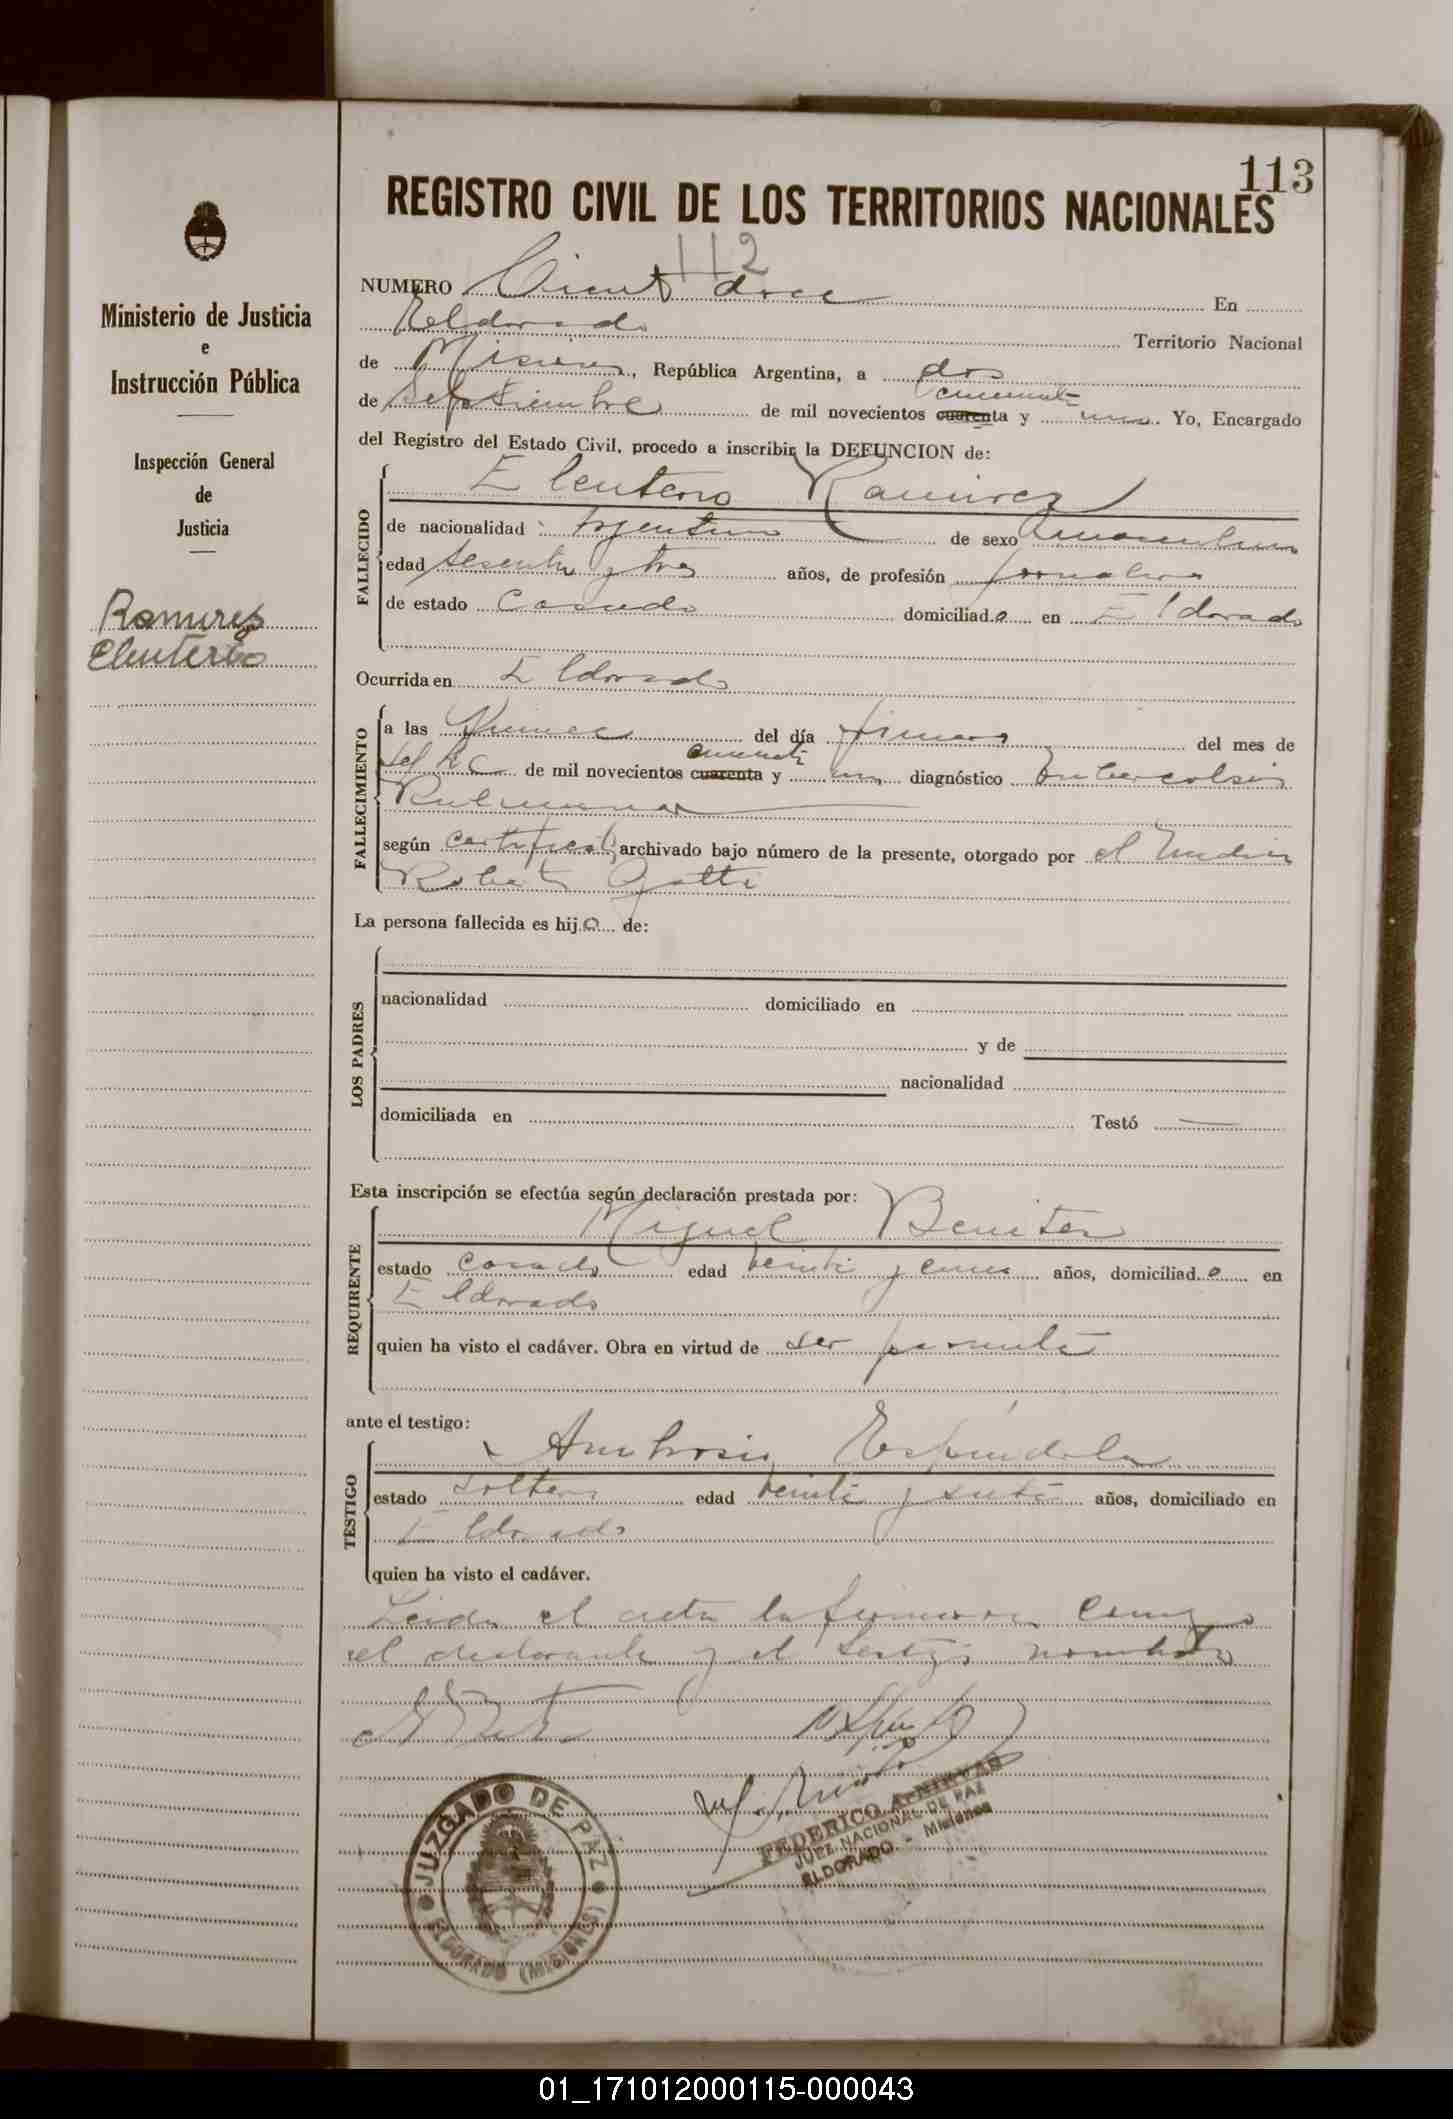 113
REGISTRO CIVIL DE LOS TERRITORIOS NACIONALES
112
NUMERO Ciento doce En
Eldorado Territorio Nacional
de Misiones, República Argentina, a dos
cincuenta
de Septiembre de mil novecientos cuarenta y uno. Yo, Encargado
del Registro del Estado Civil, procedo a inscribir la DEFUNCION de:
Eleuterio Ramirez
FALLECIDO
de nacionalidad Argentino de sexo masculino
edad sesenta y tres años, de profesión jornalero
de estado casado domiciliado en Eldorado
Ocurrida en Eldorado
FALLECIMIENTO
a las quince del día primero del mes de
cincuenta
de mil novecientos cuarenta y uno diagnóstico tuberculosis
Pulmonar
según certificado archivado bajo número de la presente, otorgado por el medico
Roberto Gatti
La persona fallecida es hijo de:
LOS PADRES
nacionalidad domiciliado en
y de
nacionalidad
domiciliada en Testó
Esta inscripción se efectúa según declaración prestada por:
Miguel Benitez
REQUIRENTE
estado casado edad veinti y cinco años, domiciliado en
Eldorado
quien ha visto el cadáver. Obra en virtud de ser pariente
ante el testigo:
Ambrosio Espíndola
TESTIGO
estado soltero edad veinti y siete años, domiciliado en
Eldorado
quien ha visto el cadáver.
Leida el acta la firmaron conmigo
el declarante y el testigo nombrado
JUZGADO DE PAZ
ELDORADO (MISIONES)
FEDERICO A.
JUEZ NACIONAL DE PAZ
ELDORADO - Misiones
Ministerio de Justicia
e
Instrucción Pública
Inspección General
de
Justicia
Ramirez
Eleuterio
01_171012000115-000043